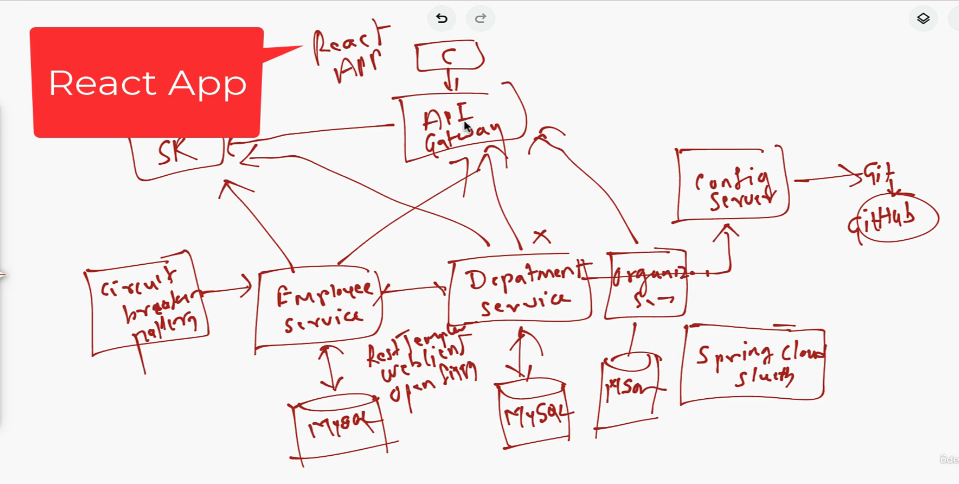 React App
React
APP
C
API
Gateway
SR
Config
Server
Git
GitHub
Circuit
breaker
pattern
Employee
service
Department
service
X
Organiz...
S.
RestTemplate
Webclient
open
Spring Cloud
Sleuth
MySQL
MySQL
MSQL